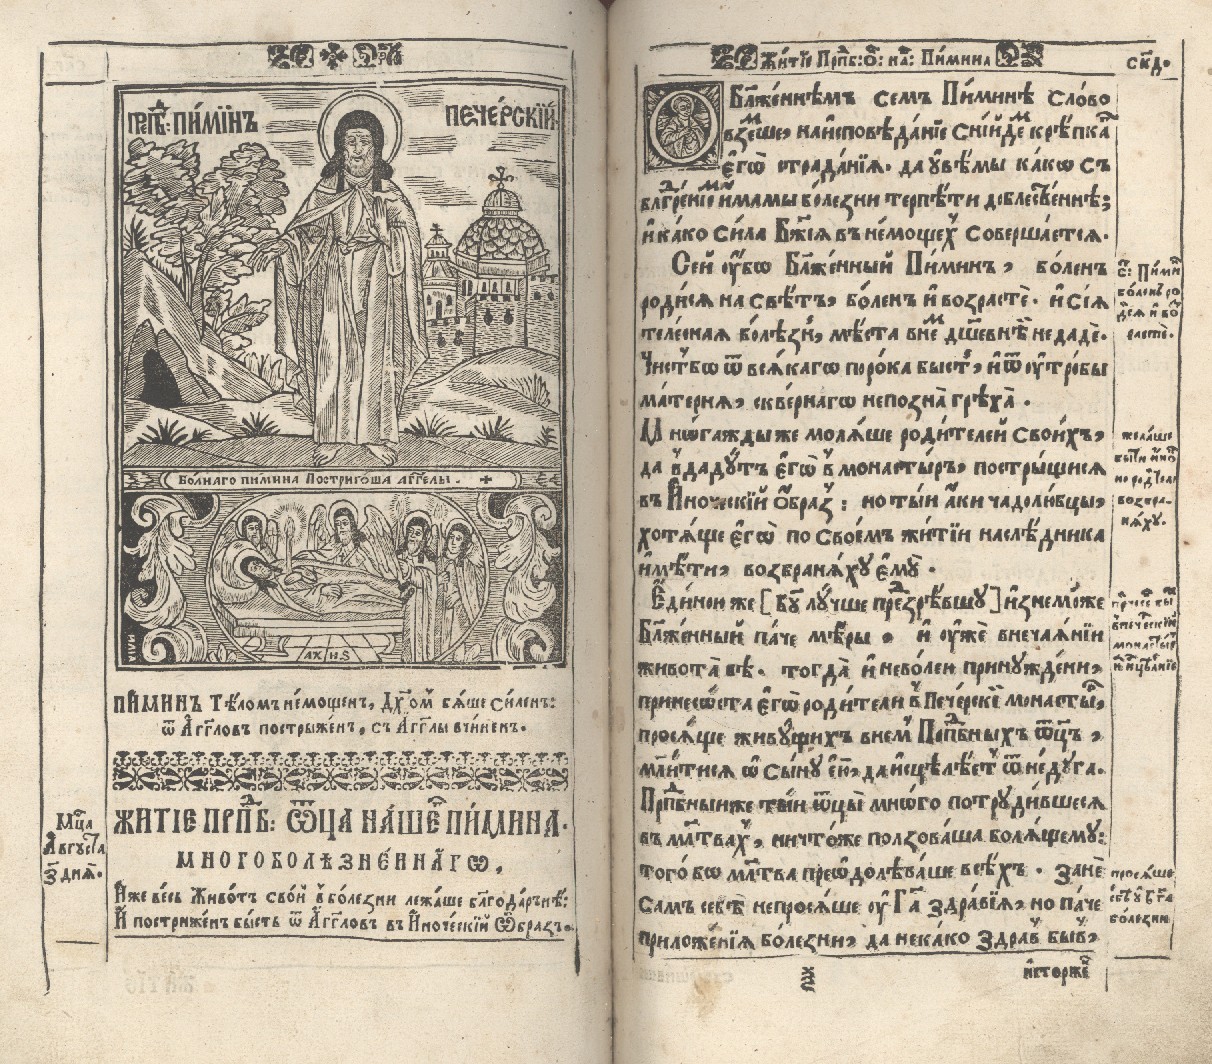 Прпⷣб: ПИ́МІИНЪ ПЕЧЕ́РСКІЙ:
БОЛНАГО ПИМИНА ПОСТРИГОША АГГЕЛЫ. +
ИЛІА
АХИЅ
ПИ́МИНЪ Тѣ́ломъ не́мощен, Дх҃ом бѧ́ше си́лен:
ѿ А҆́гг҃лов постры́жен, съ А҆гг҃лы вчи́нен.
Мцⷭ҇а
А҆́вгꙋста
З҃ днѧ̀.
ЖИТІЕ ПРПⷣБ: Ѿ҃ЦА НА́ШЕГⷪ ПИ́МИНА.
МНОГОБОЛѢЗНЕ́ННАГѠ,
И҆́же весь Живо́тъ сво́й в болезни лежа́ше благода́рнѣ:
И҆ постриже́н бысть ѿ А҆́гг҃лов въ И҆́ноческій Ѡ҆́бразъ.
Житїѐ Прпⷣб: Ѻ҃: на: Пи́мина
СК҃Д.
Ѡ Бл҃же́ннѣмъ семъ Пи́минѣ сло́во
в́земше, на и҆сповѣ́данїе сни́йдем крѣ́пкаго
є҆гѡ̀ страда́нїѧ. да ᲂу҆вѣ́мы ка́кѡ съ
и҆́мамы болезни терпѣ́ти до́блественнѣ;
и҆ ка́ко си́ла Бж҃їѧ въ не́мощех соверша́етсѧ.
Сей ᲂу҆́бѡ Бл҃же́нный Пи́мин, бо́лен
роди́сѧ на свѣ́тъ, бо́лен и҆ возрастѐ. и҆ сїѧ̀
теле́снаѧ болѣ́знь, мѣ́ста в нем дш҃е́внѣй не дадѐ.
Чи́ст бѡ ѿ всѧ́кагѡ поро́ка бысть, и҆ ѿ ᲂу҆тро́бы
ма́тернѧ, скве́рнагѡ не позна̀ грѣха̀.
Мно́гажды же молѧ́ше роди́телей свои́хъ,
да в́дадꙋтъ є҆гѡ̀ в монасты́рь, постры́щисѧ
въ И҆́ноческїй ѻ҆́браз: но ты́и а҆́ки чадолю́бцы,
хотѧ́ще є҆гѡ̀ по свое́мъ житїи наслѣ́дника
и҆мѣ́ти, возбранѧ́хꙋ є҆мꙋ̀.
Є҆ди́ною же [Бг҃ꙋ лꙋ́чше презрѣ́вшꙋ] и҆знемо́же
Бл҃же́нный па́че мѣ́ры, и҆ ᲂу҆жѐ в неча́ѧнїи
живота̀ бѣ. тогда̀ и҆ нево́лею принꙋжде́ни,
принесо́ста є҆гѡ̀ роди́тели в Пече́рскїй монасты́рь,
просѧ́ще живꙋ́щихъ в нем Прпⷣбныхъ ѿ҃цъ,
мл҃и́тисѧ ѡ сы́нꙋ є҆ю̀, да и҆сцѣлѣ́етъ ѿ не́дꙋга.
Прпⷣбныи же ты́и ѿ҃цы̀ мно́го потрꙋди́вшесѧ
въ мл҃твах, ничто́же по́лзоваша болѧ́щемꙋ:
того́ бо мл҃тва преѡ҆долѣва́ше всѣ́хъ. занѐ
самъ себѣ̀ не просѧ́ше ᲂу҆ Гⷭ҇а здра́вїѧ, но па́че
приложе́нїѧ бо́лезни, да нека́ко здрав быв,
и҆сто́ржен
с: Пи́мин
бо́ленъ ро
дисѧ и҆ во
зрастѐ.
жела́ше
бы́ти и҆но
но роди́тели
возбра-
нѧ́хꙋ.
в пече́рскїй
монасты́рь
и҆ и҆сцѣле́нїе
просѧ́ше
себѣ ᲂу҆ Гⷭ҇а
бо́лезни.